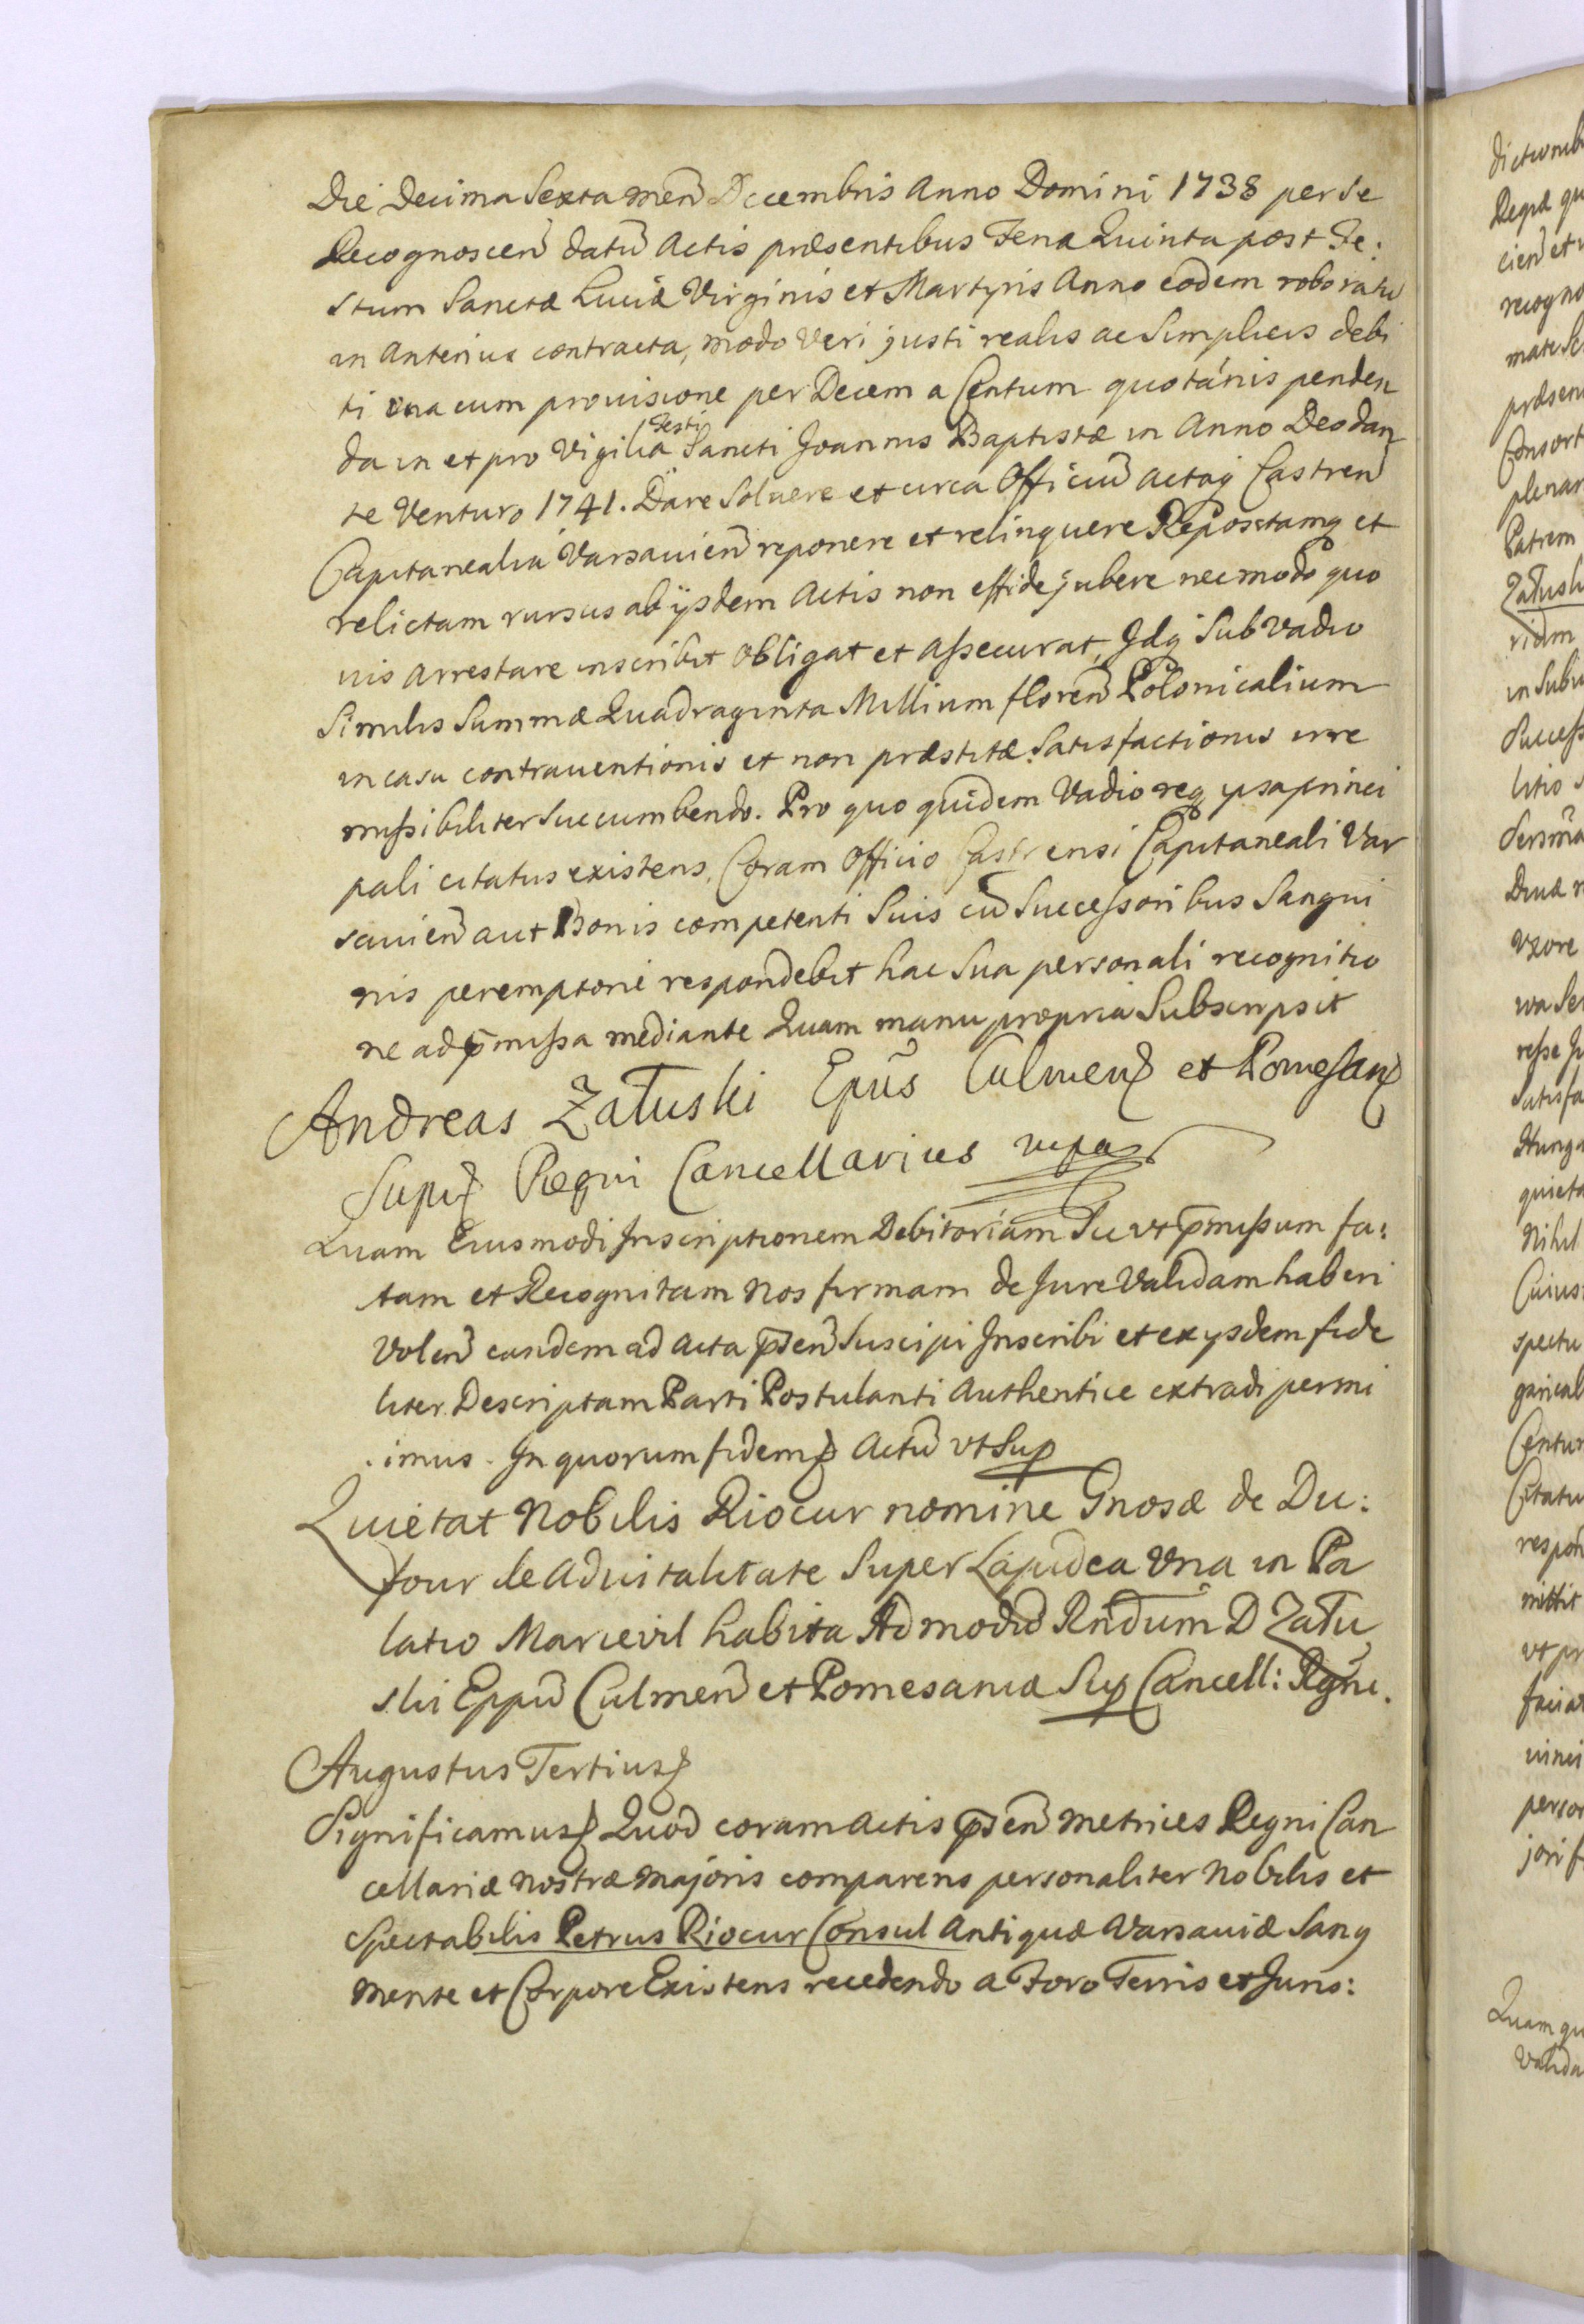 Die Decima Sexta Men̄ Decembris Anno Domini 1738 per Se
Recognoscen̄ datū Actis præsentibus Feria Quinta post Fe:
stum Sanctæ Luciæ Virginis et Martyris Anno eodem roboratū
in Anterius contracta, modo Veri justi realis ac Simplicis debi
ti una cum provisione per Decem a Centum quotánis penden
da in et pro Vigilia Festi Sancti Joannis Baptistæ in Anno Deo dan
te Venturo 1741. Dare Solvere et circa Officiū Actoq Castren̄
Capitanealia Varsavien̄ reponere et relinquere Repositamq et
relictam rursus ab ijsdem Actis non effidejubere nec modo quo
vis Arrestare inscribit Obligat et Assecurat, Idq Sub Vadio
Similis Summæ Quadraginta Millium floren̄ Polonicalium
in casu contraventionis et non præstitæ Satisfactionis irre
missibiliter Succumbendo. Pro quo quidem Vadio req ipsa princi
pali citatus existens, Coram Officio Castrensi Capitaneali Var
savien̄ aut Bonis competenti Suis cū Successoribus Sangvi
nis peremptorie respondebit hac Sua personali recognitio
ne ad p̄missa mediante Quam manu propria Subscripsit
Andreas Załuski Epūs Culmen et Pomesan
Supr Regni Cancellarius mpa
Quam Eiusmodi Inscriptionem Debitoriam Sic ut p̄missum fa:
tam et Recognitam Nos firmam de Jure Validam haberi
Volen̄ eandem ad Acta p̄sen̄ Suscipi Inscribi et ex ijsdem fide
liter Descriptam Parti Postulanti Authentice extradi permi
imus. In quorum fidem Actū ut Sup
Quietat Nobilis Riocur nomine Gnosæ de Du:
four de Advitalitate Super Lapidea Una in Pa
latio Marievil habita Admodū Rndum D Zału
ski Eppū Culmen̄ et Pomesaniæ Sup Cancell: Regni.
Augustus Tertius
Significamus Quod coram Actis p̄sen̄ Metrices Regni Can
cellariæ Nostræ Majoris comparens personaliter Nobilis et
Spectabilis Petrus Riocur Consul Antiquæ Varsaviæ Sanq
Mente et Corpore Existens recedendo a Foro Terris et Juris: